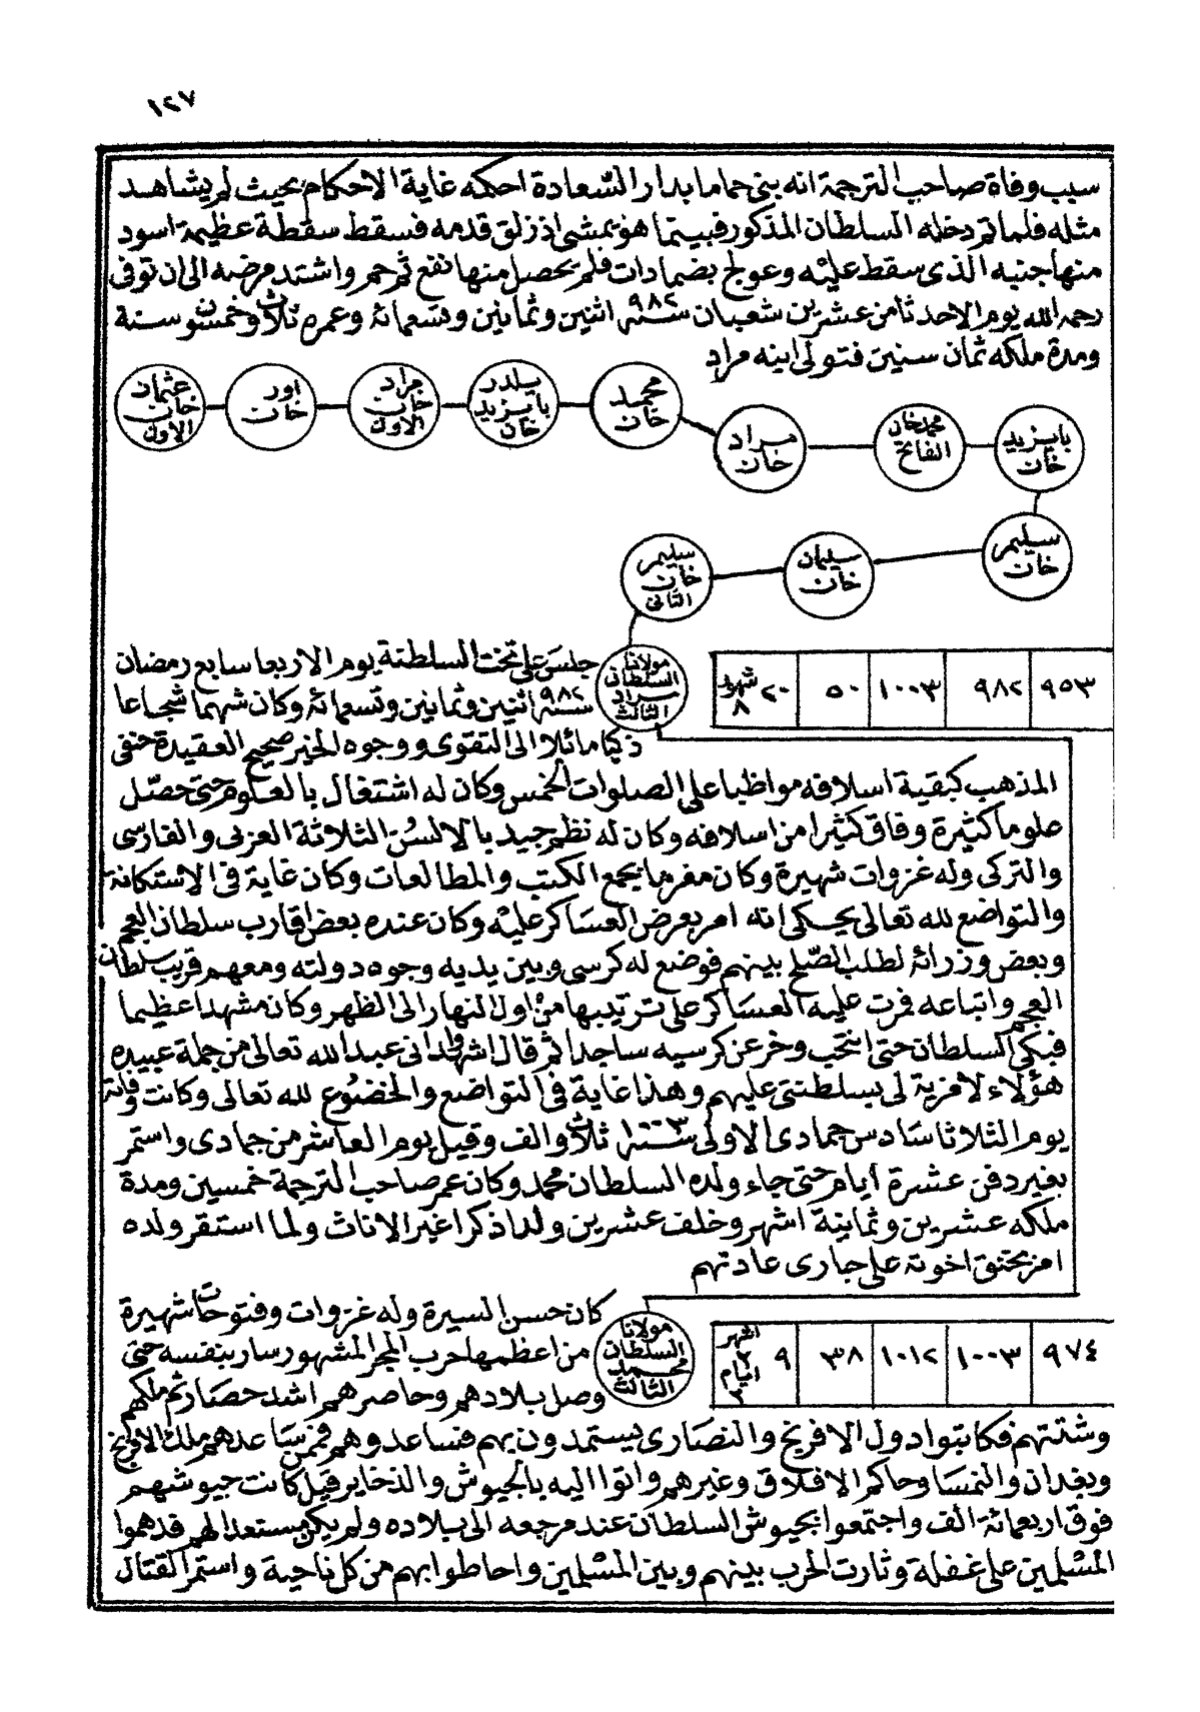 ١٢٧
سبب وفاة صاحب الترجمة انه بنى حماما بدار السّعادة احكمه غاية الاحكام بحيث لم يشاهد
مثله فلما تم دخله السلطان المذكور فبينما هو يمشى اذ زلق قدمه فسقط سقطة عظيمة اسود
منها جنبه الذى سقط عليه وعولج بضمادات فلم يحصل منها نفع ثم حم واشتد مرضه الى ان توفى
رحمه الله يوم الاحد ثامن عشرين شعبان سنة ٩٨٢ اثنين وثمانين وتسعمائة وعمره ثلاث وخمسون سنة
ومدة ملكه ثمان سنين فتولى ابنه مراد
بايزيد خان
محمد خان الفاتح
مراد خان
محمد خان
يلدر بايزيد خان
مراد خان الاول
اور خان
عثمان خان الاول
سليم خان
سليمان خان
سليم خان الثانى
٩٥٣ ٩٨٢ ١٠٠٣ ٥٠ ٢٠ شهور ٨
مولانا السلطان مراد الثالث
جلس على تخت السلطنة يوم الاربعا سابع رمضان
سنة ٩٨٢ اثنين وثمانين وتسعمائة وكان شهما شجاعا
ذكيا مائلا الى التقوى ووجوه الخير صحيح العقيدة حنفى
المذهب كبقية اسلافه مواظبا على الصلوات الخمس وكان له اشتغال بالعلوم حتى حصّل
علوما كثيرة وفاق كثيرا من اسلافه وكان له نظم جيد بالالسُن الثلاثة العربى والفارسى
والتركى وله غزوات شهيرة وكان مغرما بجمع الكتب والمطالعات وكان غاية فى الاستكانة
والتواضع لله تعالى يحكى انه امر بعرض العساكر عليه وكان عنده بعض اقارب سلطان العجم
وبعض وزرائه لطلب الصّلح بينهم فوضع له كرسى وبين يديه وجوه دولته ومعهم قريب سلطان
العجم واتباعه فمرت عليه العساكر على ترتيبها من اول النهار الى الظهر وكان مشهدا عظيما
فبكى السلطان حتى انتحب وخر عن كرسيه ساجدا ثم قال اشهدوا انى عبد الله تعالى من جملة عبيده
هؤلاء لا مزية لى بسلطنتى عليهم وهذا غاية فى التواضع والخضوع لله تعالى وكانت وفاته
يوم الثلاثا سادس جمادى الاولى سنة ١٠٠٣ ثلاث والف وقيل يوم العاشر من جمادى واستمر
بغير دفن عشرة ايام حتى جاء ولده السلطان محمد وكان عمر صاحب الترجمة خمسين ومدة
ملكه عشرين وثمانية اشهر وخلف عشرين ولدا ذكرا غير الاناث ولما استقر ولده
امر بخنق اخوته على جارى عادتهم
٩٧٤ ١٠٠٣ ١٠١٢ ٣٨ ٩ اشهر ٢ ايام ٢
مولانا السلطان محمد الثالث
كان حسن السيرة وله غزوات وفتوحات شهيرة
من اعظمها حرب المجر المشهور سار بنفسه حتى
وصل بلادهم وحاصرهم اشد حصار ثم ملكهم
وشتتهم فكاتبوا دول الافرنج والنصارى يستمدون بهم فساعدوهم فممن ساعدهم ملك الافرنج
وبغدان والنمسا وحاكم الافلاق وغيرهم واتوا اليه بالجيوش والذخاير قيل كانت جيوشهم
فوق اربعمائة الف واجتمعوا بجيوش السلطان عند مرجعه الى بلاده ولم يكن مستعدا لهم فدهموا
المسلمين على غفلة وثارت الحرب بينهم وبين المسلمين واحاطوا بهم من كل ناحية واستمر القتال